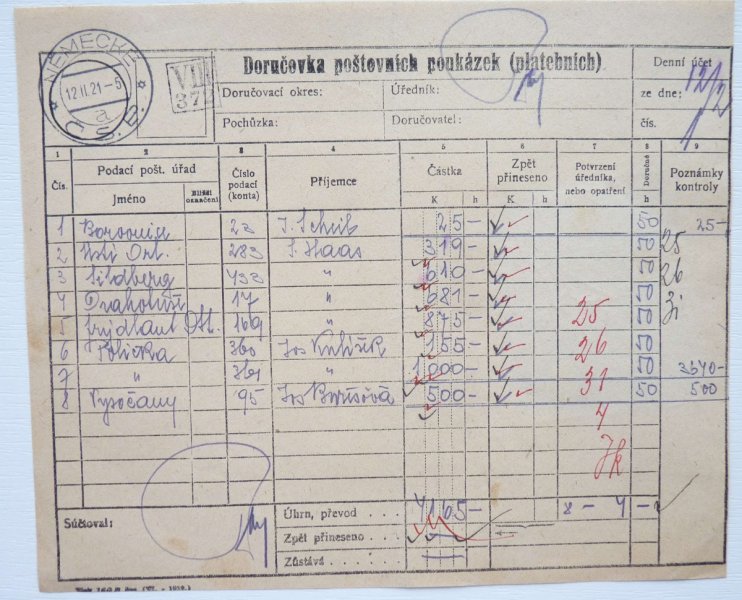 NĚMECKÉ
12.II.21-5
a
Č. S. P.
VII
37
Doručovka poštovních poukázek (platebních)
Denní účet
Doručovací okres:
Úředník:
ze dne:
12/2
Pochůzka:
Doručovatel:
čís.
1 2 3 4 5 6 7 8 9
Čís.
Podací pošt. úřad
Jméno
Bližší označení
Číslo podací (konta)
Příjemce
Částka
K h
Zpět přineseno
K h
Potvrzení úředníka, nebo opatření
Doručné
h
Poznámky kontroly
1 Borovnice 23 J. Scheib 25- 50 25-
2 Ústí Orl. 283 S. Haas 319- 50 25
3 Sildberg 433 " 610- 50 26
4 17 " 681- 50 31
5 169 " 875- 25 50
6 Polička 360 Jos 155- 26 50
7 " 361 " 1000- 31 50 3640-
8 Vysočany 95 Jos 500- 50 500
4
Súčtoval:
Úhrn, převod . . . 4165- 8 - 4 -
Zpět přineseno . . .
Zůstává . . . .